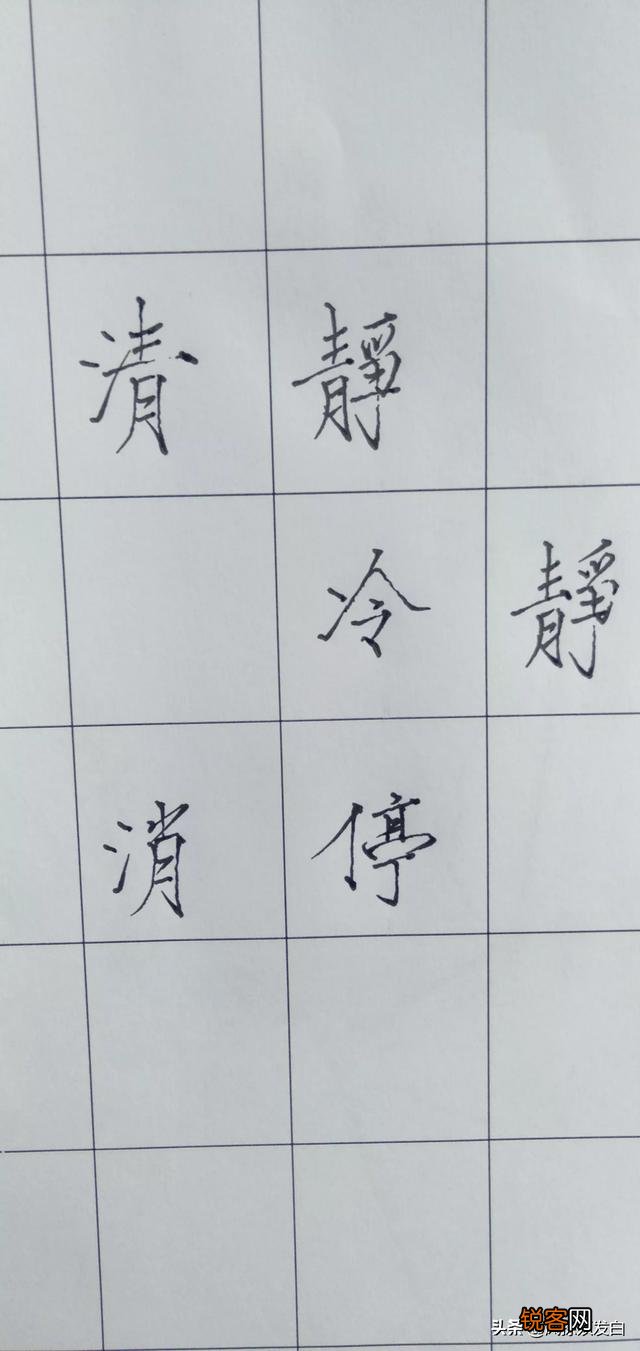 清靜
冷靜
消停
锐客网
头条
发白